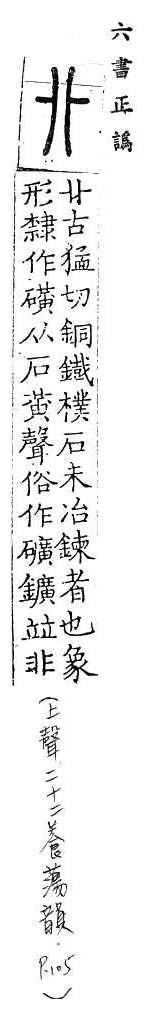 六書正譌
卝
卝古猛切銅鐵樸石未冶鍊者也象
形隸作磺从石黃聲俗作礦鑛竝非
(上聲二十二養蕩韻.P.105)